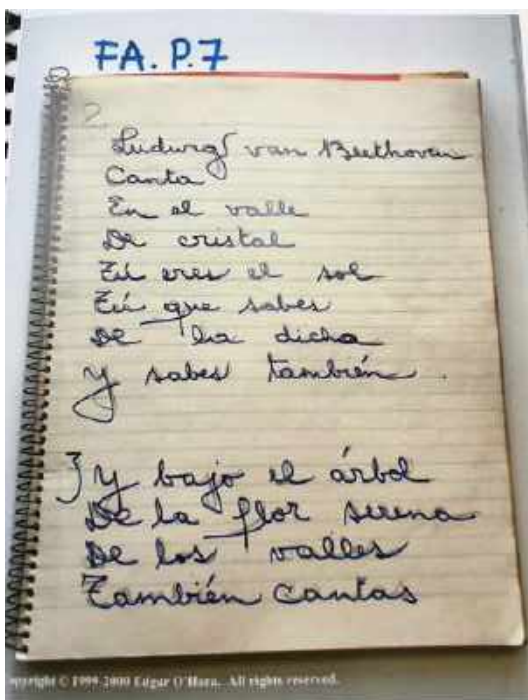 FA. P.7
2.
Ludwig van Beethoven
Canta
En el valle
De cristal
Tú eres el sol
Tú que sabes
De la dicha
Y sabes también.
Y bajo el árbol
De la flor serena
De los valles
También cantas
Copyright © 1999-2000 Edgar O'Hara. All rights reserved.